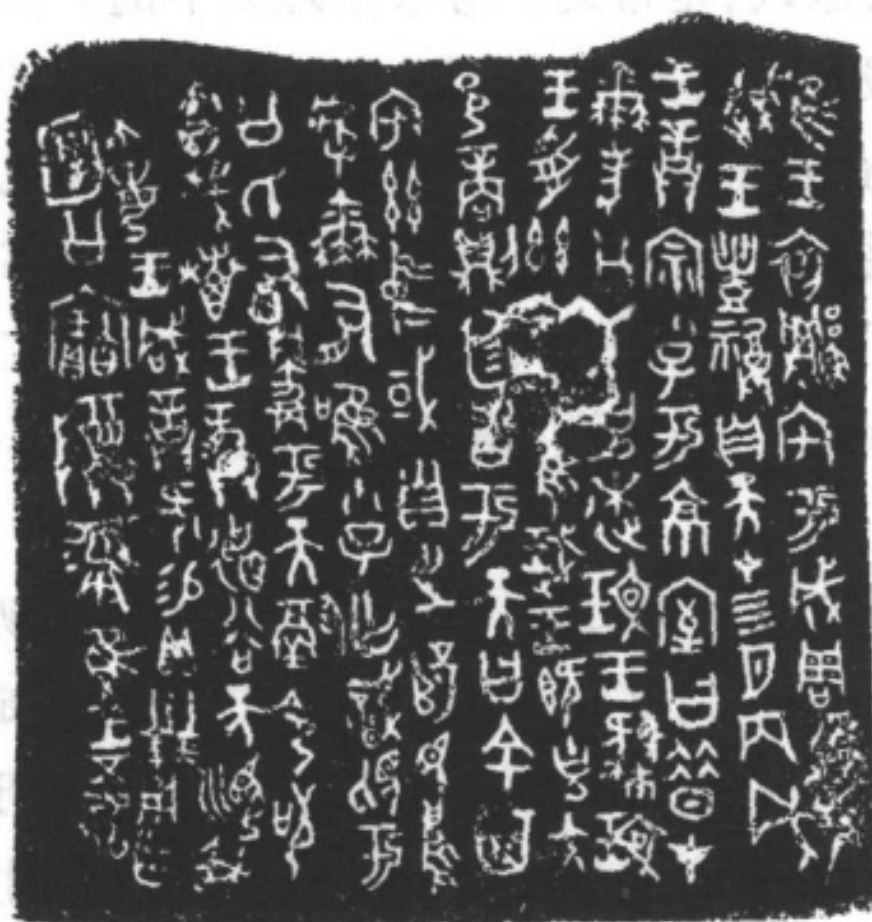 隹王初遷宅于成周復
爯王豐祼自天才四月丙戌
王誥宗小子于京室曰昔才
爾考公氏克逨玟王肆玟
王受茲隹珷王既克大
邑商則廷告于天曰余其
宅茲中或自之乂民烏
虖爾有唯小子亡識視于
公氏有爵于天徹令苟
享戈叀王龏德谷天順我
不每王咸誥何易貝卅朋用乍
庾公寶尊彝隹王五祀